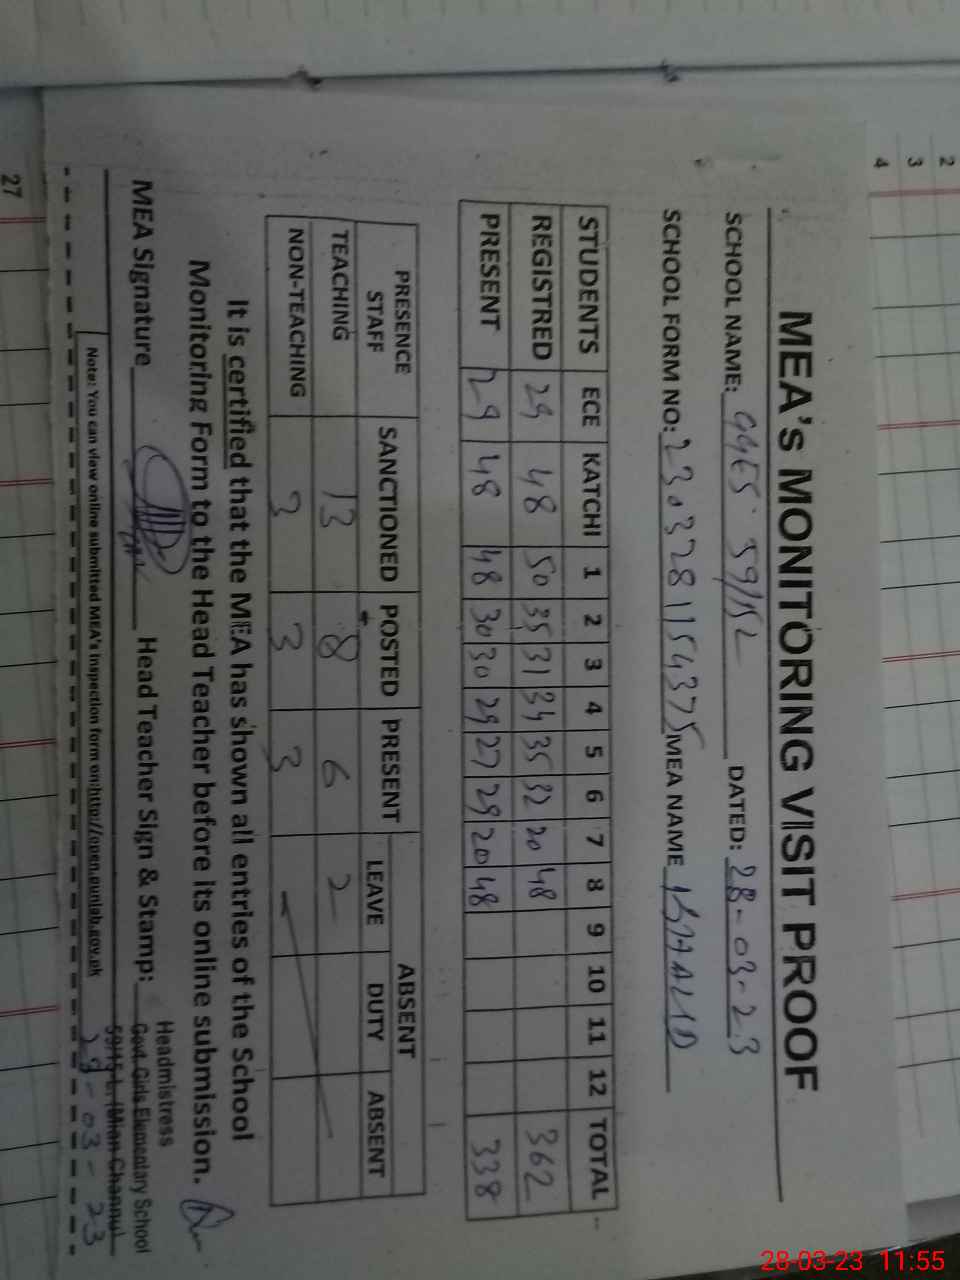 2
3
4
MEA's MONITORING VISIT PROOF
SCHOOL NAME: GGES 59/15L DATED: 28-03-23
SCHOOL FORM NO: 2303281154375 MEA NAME KHALID
STUDENTS ECE KATCHI 1 2 3 4 5 6 7 8 9 10 11 12 TOTAL
REGISTRED 29 48 50 35 31 34 35 32 20 48 362
PRESENT 29 48 48 30 30 29 27 29 20 48 338
PRESENCE STAFF SANCTIONED POSTED PRESENT ABSENT
LEAVE DUTY ABSENT
TEACHING 13 8 6 2
NON-TEACHING 3 3 3
It is certified that the MEA has shown all entries of the School
Monitoring Form to the Head Teacher before its online submission.
MEA Signature Head Teacher Sign & Stamp:
Headmistress
Govt. Girls Elementary School
59/15-L. (Mian Channu)
28-03-23
Note: You can view online submitted MEA's inspection form on:http://open.punjab.gov.pk
27
28-03-23 11:55